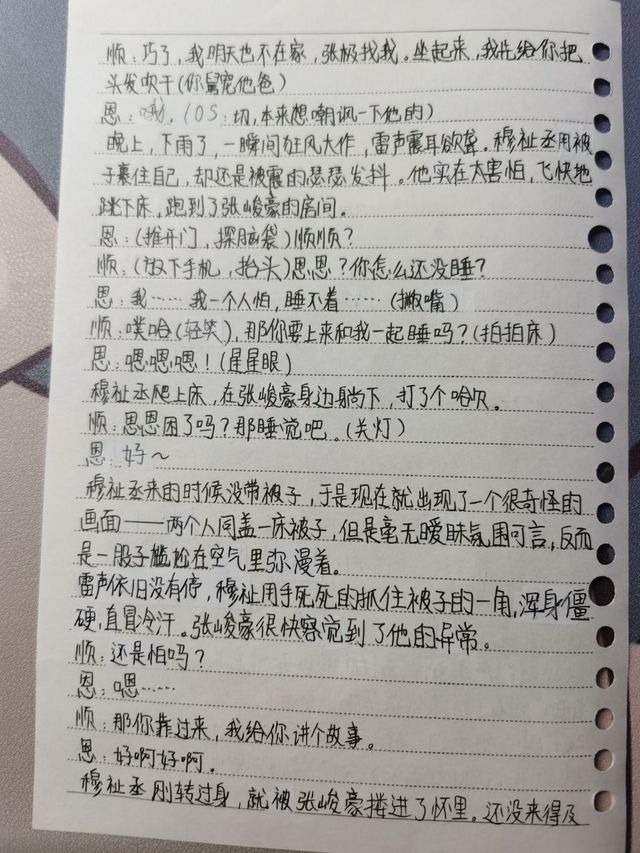 顺：巧了，我明天也不在家，张极找我。坐起来，我先给你把
头发吹干(你舅宠他爸)
恩：哦。(OS：切，本来想嘲讽一下他的)
晚上，下雨了，一瞬间狂风大作，雷声震耳欲聋。穆祉丞用被
子裹住自己，却还是被震的瑟瑟发抖。他实在太害怕，飞快地
跳下床，跑到了张峻豪的房间。
恩：(推开门，探脑袋)顺顺？
顺：(放下手机，抬头)恩恩？你怎么还没睡？
恩：我……我一个人怕，睡不着……(撇嘴)
顺：噗哈(轻笑)，那你要上来和我一起睡吗？(拍拍床)
恩：嗯嗯嗯！(星星眼)
穆祉丞爬上床，在张峻豪身边躺下，打了个哈欠。
顺：恩恩困了吗？那睡觉吧。(关灯)
恩：好～
穆祉丞来的时候没带被子，于是现在就出现了一个很奇怪的
画面——两个人同盖一床被子，但是毫无暧昧氛围可言，反而
是一股子尴尬在空气里弥漫着。
雷声依旧没有停，穆祉用手死死的抓住被子的一角，浑身僵
硬，直冒冷汗。张峻豪很快察觉到了他的异常。
顺：还是怕吗？
恩：嗯……
顺：那你靠过来，我给你讲个故事。
恩：好啊好啊。
穆祉丞刚转过身，就被张峻豪搂进了怀里。还没来得及